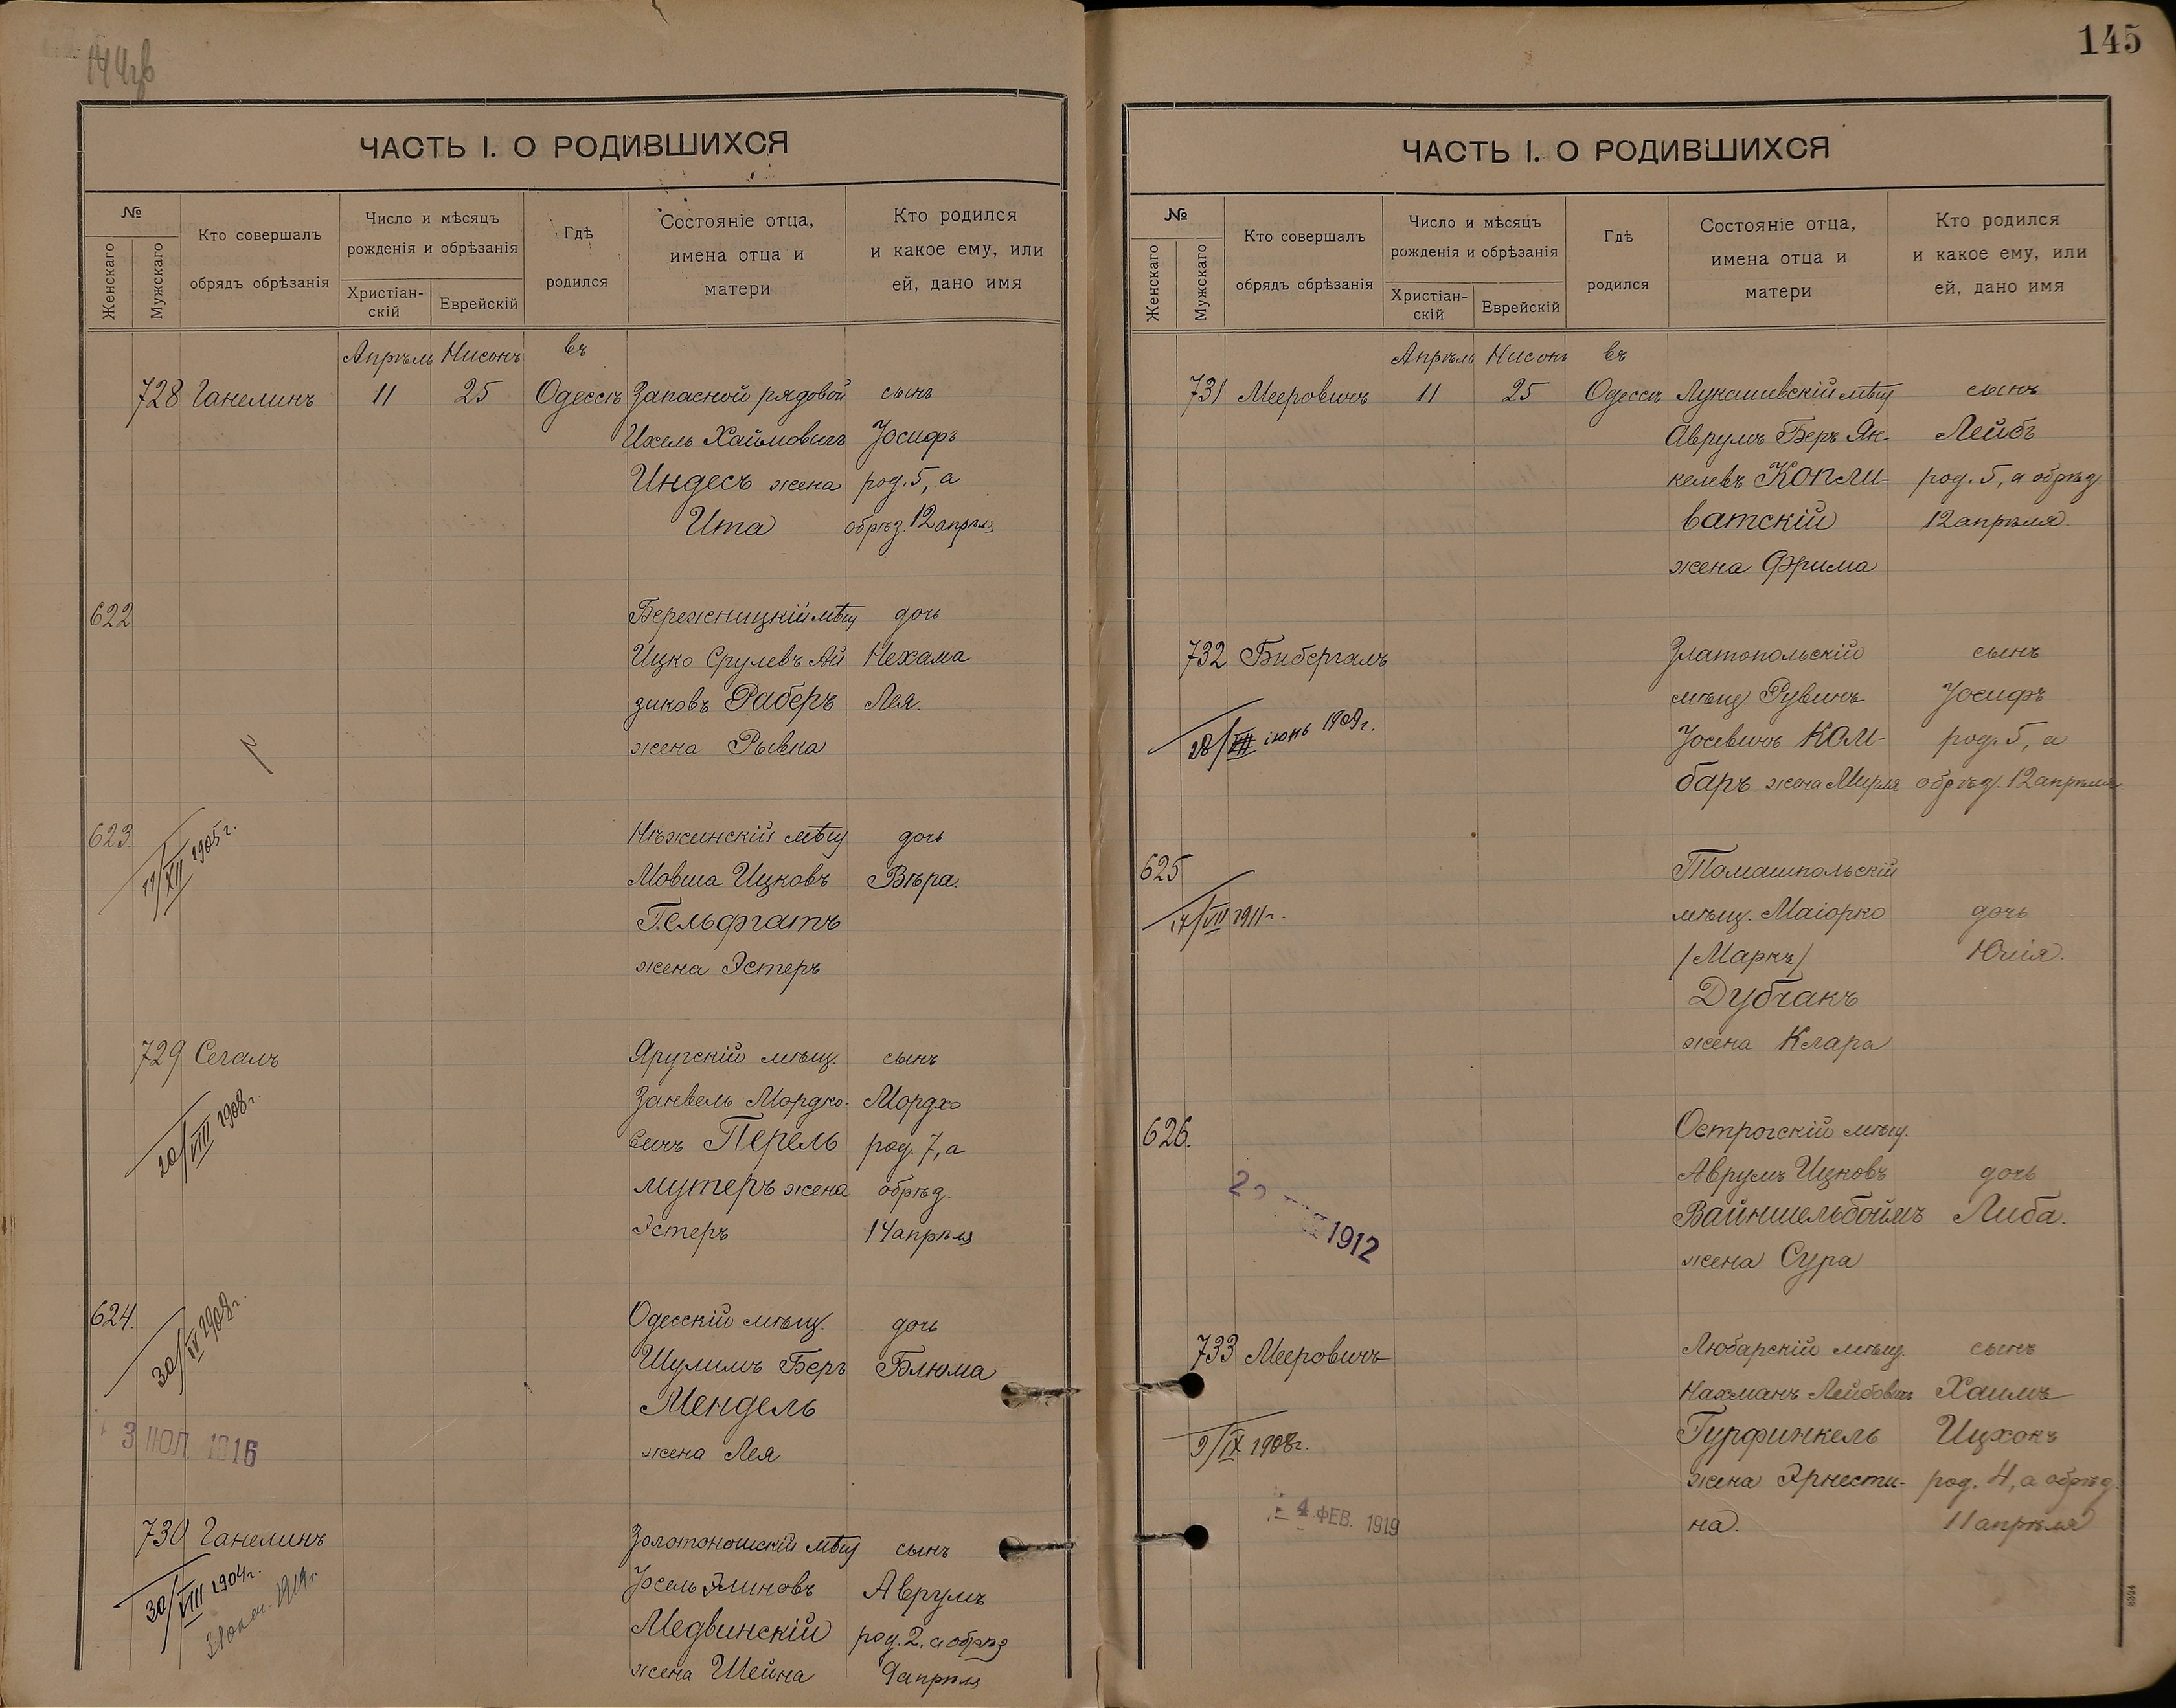 144об
ЧАСТЬ I. О РОДИВШИХСЯ
№
Женскаго
Мужскаго
Кто совершалъ
обрядъ обрѣзанія
Число и мѣсяцъ
рожденія и обрѣзанія
Христіан-
скій
Еврейскій
Гдѣ
родился
Состояніе отца,
имена отца и
матери
Кто родился
и какое ему, или
ей, дано имя
Апрѣль Нисонъ въ
728 Ганелинъ 11 25 Одессѣ Запасной рядовой сынъ
Ихель Хаймовичъ Іосифъ
Индесъ жена род. 5, а
Ита обрѣз. 12 апрѣля
622 Бережницкій мѣщ дочь
Ицко Срулевъ Ай Нехама
зиковъ Раберъ Лея.
жена Рывка
623. Нѣжинскій мѣщ дочь
11/XII 1905 г.
Мовша Ицковъ Вѣра.
Гельфгатъ
жена Эстеръ
729 Сегалъ Яругскій мѣщ. сынъ
20/VIII 1908 г.
Занвель Мордко- Мордхо
вичъ Перель род. 7, а
мутеръ жена обрѣз.
Эстеръ 14 апрѣля
624. Одесскій мѣщ. дочь
30/IV 1908 г.
Шулимъ Беръ Блюма
Мендель
3 ІЮЛ 1916
жена Лея
730 Ганелинъ Золотоношскій мѣщ сынъ
30/VIII 1904 г.
1919 г.
Іосель Элиновъ Аврумъ
Медвинскій род. 2, а обрѣз
жена Шейна 9 апрѣля
145
ЧАСТЬ I. О РОДИВШИХСЯ
№
Женскаго
Мужскаго
Кто совершалъ
обрядъ обрѣзанія
Число и мѣсяцъ
рожденія и обрѣзанія
Христіан-
скій
Еврейскій
Гдѣ
родился
Состояніе отца,
имена отца и
матери
Кто родился
и какое ему, или
ей, дано имя
Апрѣль Нисонъ въ
731 Мееровичъ 11 25 Одессѣ Лукашевскій мѣщ сынъ
Аврумъ Беръ Ян- Лейбъ
келевъ Копли- род. 5, а обрѣз
ватскій 12 апрѣля.
жена Фрима
732 Бибергалъ Златопольскій сынъ
мѣщ. Рувинъ Іосифъ
28/VII іюнь 1909 г.
Іосевичъ Ком- род. 5, а
баръ жена Мирля обрѣз. 12 апрѣля
625 Томашпольскій
17/VII 1911 г.
мѣщ. Маіорко дочь
/Маркъ/ Юлія.
Дубчакъ
жена Клара
626. Острогскій мѣщ.
Аврумъ Ицковъ дочь
1912
Вайншельбоймъ Либа.
жена Сура
733 Мееровичъ Любарскій мѣщ. сынъ
Нахманъ Лейбовъ Хаимъ
9/IX 1908 г.
Гурфинкель Ицхокъ
жена Эрнести- род. 4, а обрѣз
4 ФЕВ. 1919
на. 11 апрѣля